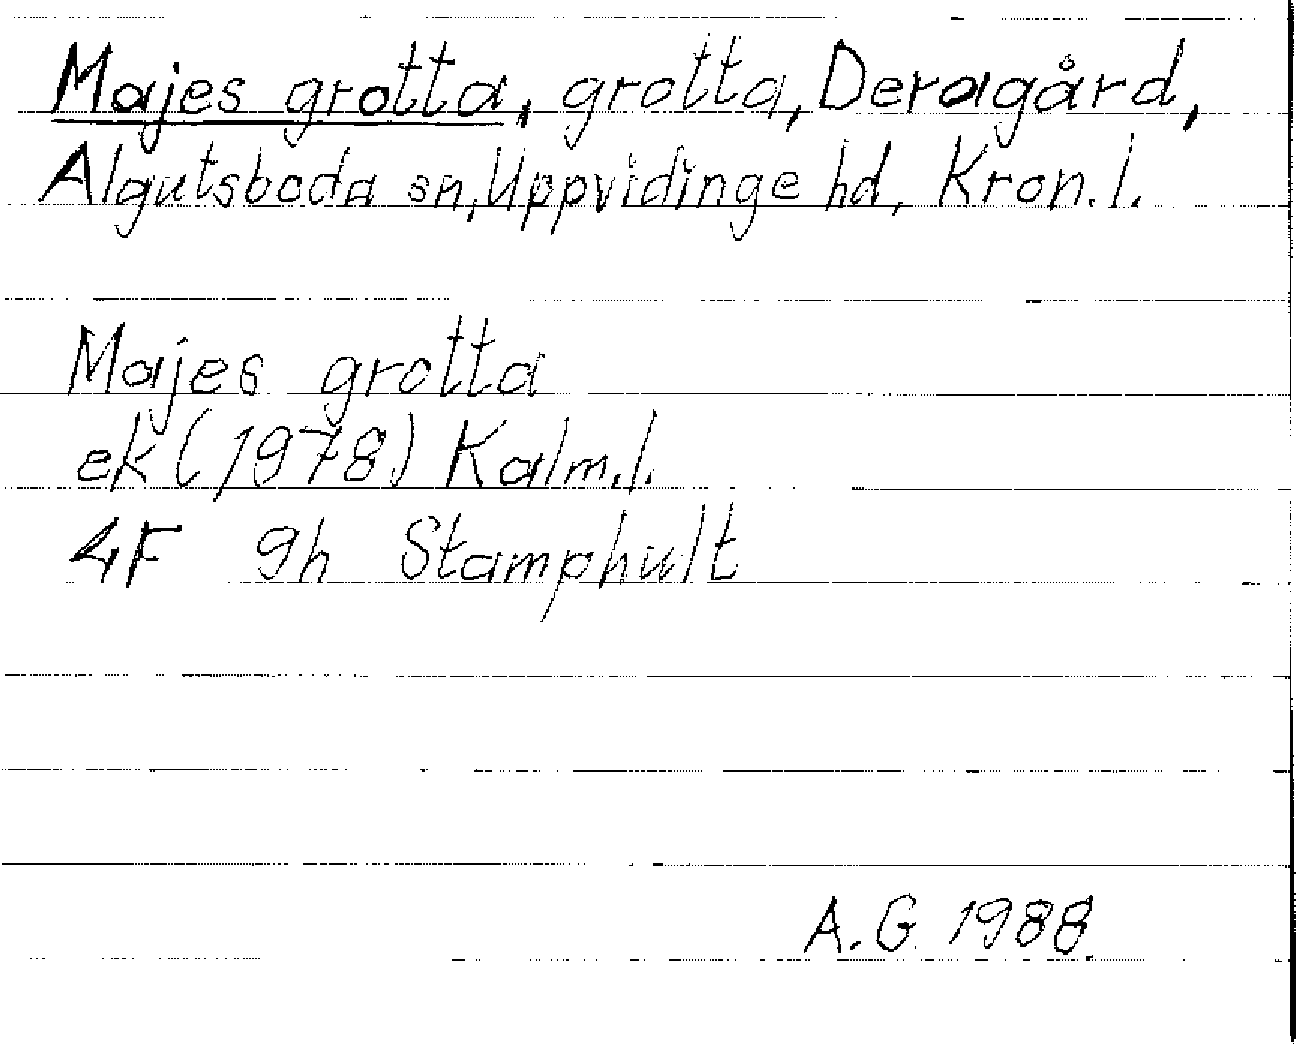 Majes grotta, grotta, Deragård,
Algutsboda sn, Uppvidinge hd, Kron.l.
Majes grotta
ek (1978) Kalm.l.
4F 9h Stamphult
A.G. 1988.